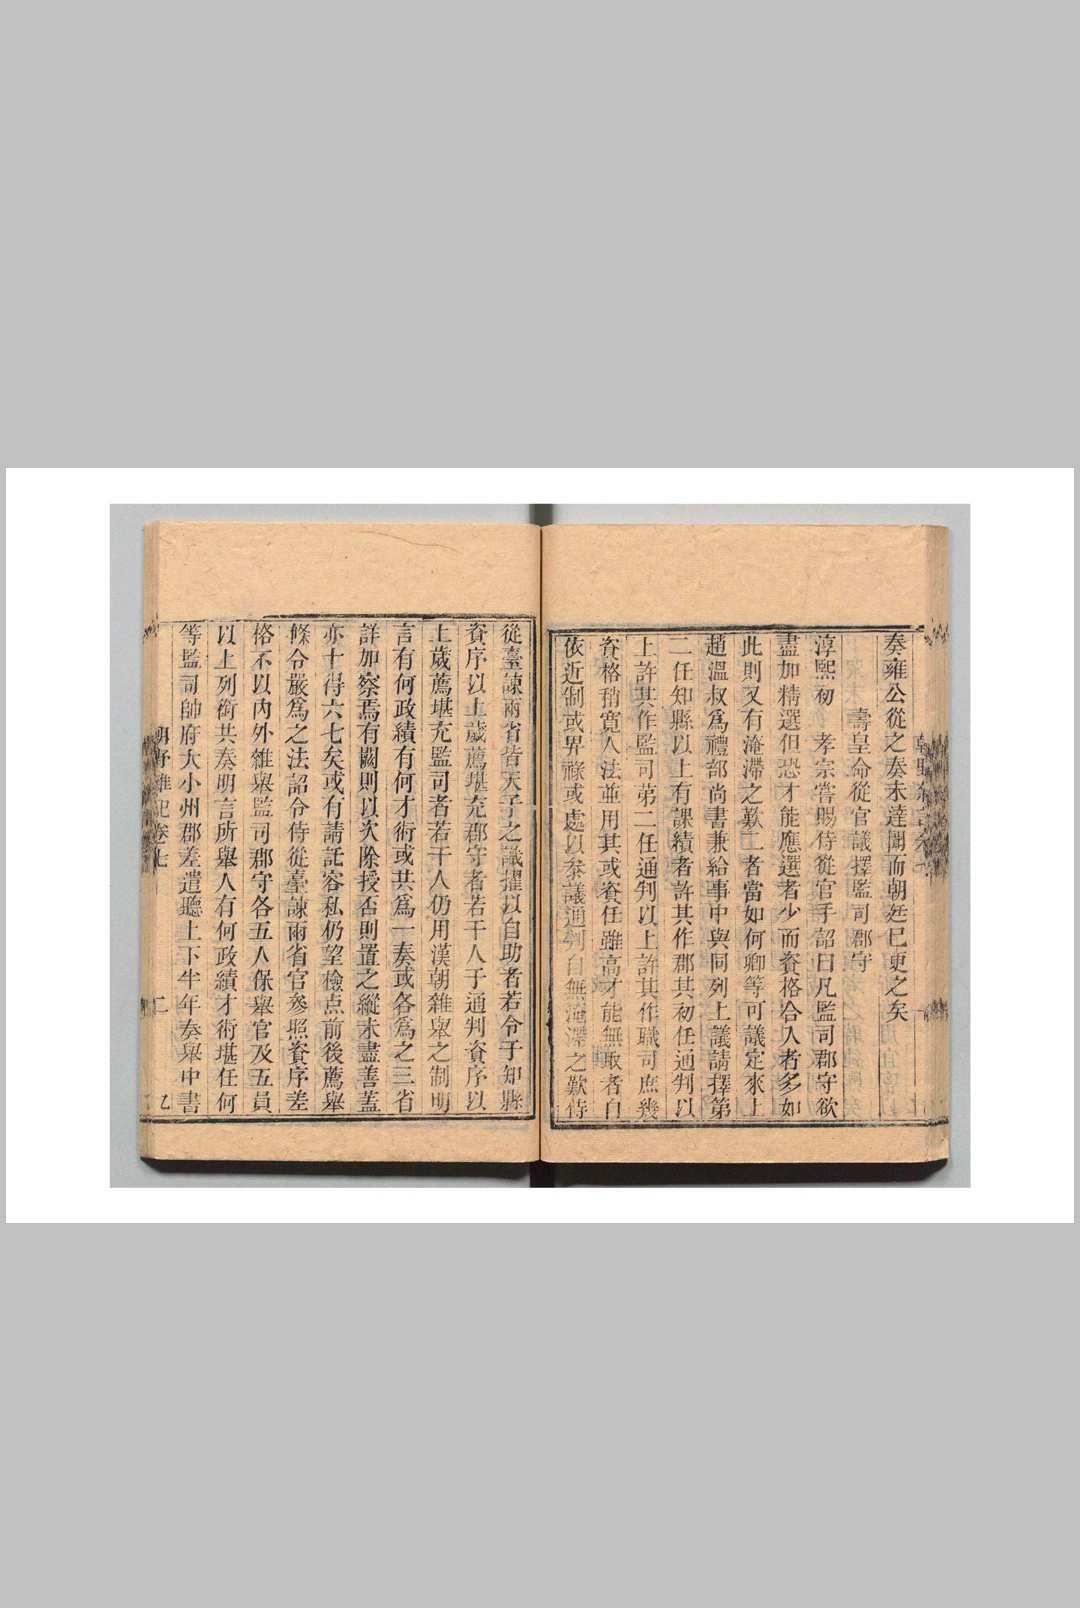 奏雍公從之奏未達聞而朝廷已更之矣
壽皇命從官議擇監司郡守
淳熙初 孝宗嘗賜侍從官手詔曰凡監司郡守欲
盡加精選但恐才能應選者少而資格合入者多如
此則又有淹滯之歎二者當如何卿等可議定來上
趙溫叔爲禮部尚書兼給事中與同列上議請擇第
二任知縣以上有課績者許其作郡其初任通判以
上許其作監司第二任通判以上許其作職司庶幾
資格稍寬人法並用其或資任雖高才能無取者自
依近制或畀祿或處以參議通判自無淹滯之歎侍
從臺諫兩省皆天子之識擢以自助者若令于知縣
資序以上歲薦堪充郡守者若干人于通判資序以
上歲薦堪充監司者若干人仍用漢朝雜舉之制明
言有何政績有何才術或共爲一奏或各爲之三省
詳加察焉有闕則以次除授否則置之縱未盡善蓋
亦十得六七矣或有請託容私仍望檢点前後薦舉
條令嚴爲之法詔令侍從臺諫兩省官參照資序差
格不以内外雜舉監司郡守各五人保舉官及五員
以上列銜共奏明言所舉人有何政績才術堪任何
等監司帥府大小州郡差遣聽上下半年奏舉中書
朝野雜記卷七 二 乙